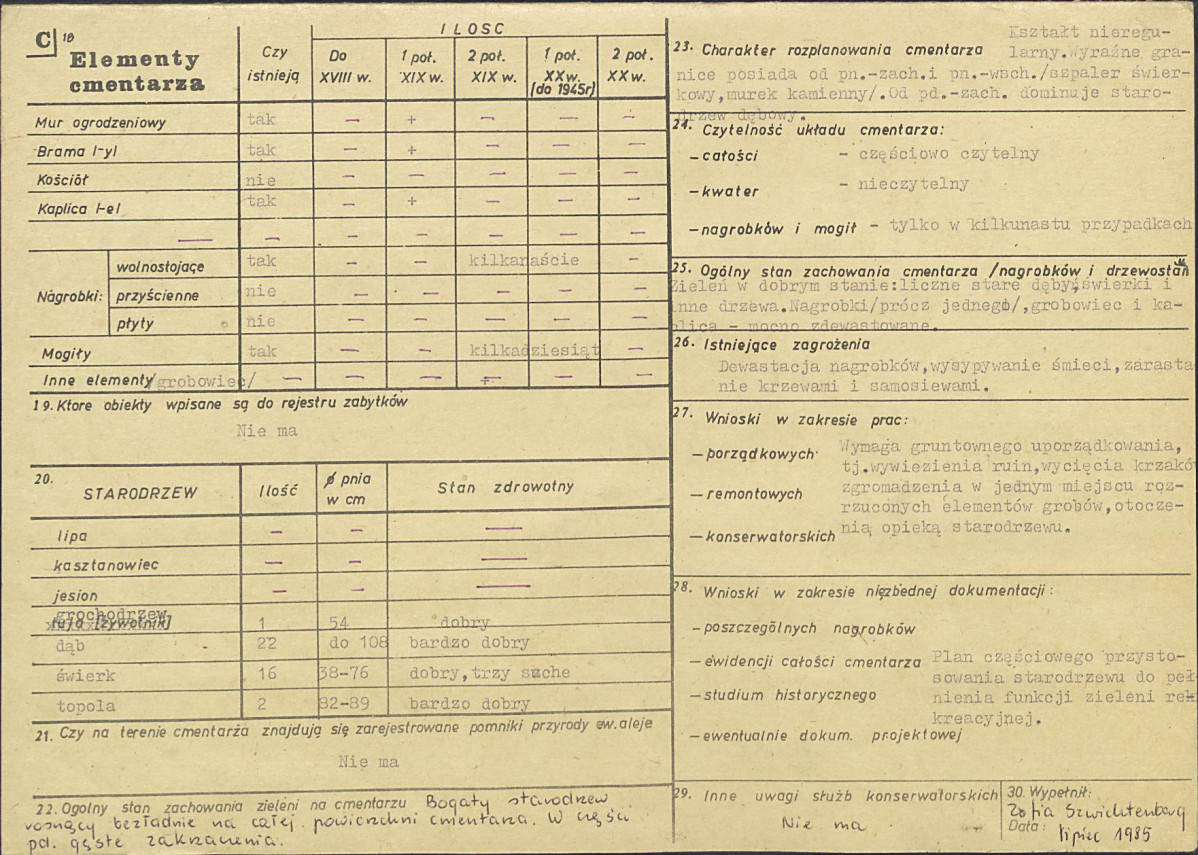 C 18
Elementy cmentarza
Czy istnieją
ILOSC
Do XVIII w.
1 poł. XIX w.
2 poł. XIX w.
1 poł. XX w. (do 1945r)
2 poł. XX w.
Mur ogrodzeniowy tak — + — — —
Brama /-y/ tak — + — — —
Kościół nie — — — — —
Kaplica /-e/ tak — + — — —
— — — — — — —
Nagrobki: wolnostojące tak — — kilkanaście —
przyścienne nie — — — — —
płyty nie — — — — —
Mogiły tak — — kilkadziesiąt —
Inne elementy /grobowiec/ — — — + — —
19. Ktore obiekty wpisane są do rejestru zabytków
Nie ma
20. STARODRZEW Ilość ø pnia w cm Stan zdrowotny
lipa — — —
kasztanowiec — — —
jesion — — —
grochodrzew 1 54 dobry
dąb 22 do 108 bardzo dobry
świerk 16 38-76 dobry, trzy suche
topola 2 82-89 bardzo dobry
21. Czy na terenie cmentarza znajdują się zarejestrowane pomniki przyrody ew. aleje
Nie ma
22. Ogolny stan zachowania zieleni na cmentarzu Bogaty starodrzew
rosnący bezładnie na całej powierzchni cmentarza. W części
pd. gęste zakrzaczenia.
23. Charakter rozplanowania cmentarza Kształt nieregu-
larny.Wyraźne gra-
nice posiada od pn.-zach.i pn.-wsch./szpaler świer-
kowy,murek kamienny/.Od pd.-zach. dominuje staro-
drzew dębowy.
24. Czytelność układu cmentarza:
- całości - częściowo czytelny
- kwater - nieczytelny
- nagrobków i mogił - tylko w kilkunastu przypadkach
25. Ogólny stan zachowania cmentarza /nagrobków i drzewostan
Zieleń w dobrym stanie:liczne stare dęby,świerki i
inne drzewa.Nagrobki/prócz jednego/,grobowiec i ka-
plica - mocno zdewastowane.
26. Istniejące zagrożenia
Dewastacja nagrobków,wysypywanie śmieci,zarasta
nie krzewami i samosiewami.
27. Wnioski w zakresie prac:
- porządkowych Wymaga gruntownego uporządkowania,
tj.wywiezienia ruin,wycięcia krzakó
- remontowych zgromadzenia w jednym miejscu roz-
rzuconych elementów grobów,otocze-
- konserwatorskich nią opieką starodrzewu.
28. Wnioski w zakresie niezbednej dokumentacji:
- poszczególnych nagrobków
- ewidencji całości cmentarza Plan częściowego przysto-
sowania starodrzewu do peł
- studium historycznego nienia funkcji zieleni rek
kreacyjnej.
- ewentualnie dokum. projektowej
29. Inne uwagi służb konserwatorskich
Nie ma
30. Wypełnił:
Zofia Szwichtenberg
Data: lipiec 1985